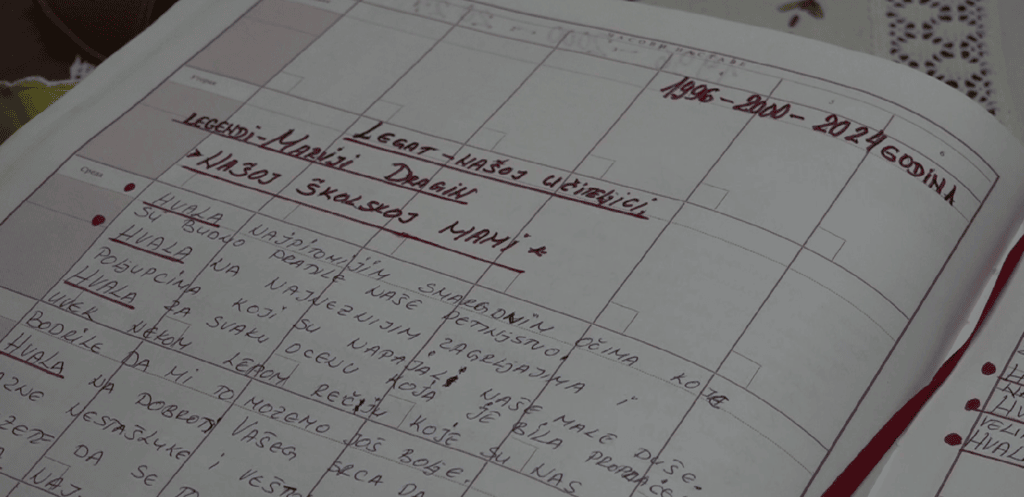 1996-2000-2024 GODINA
LEGAT-NAŠOJ UČITELJICI,
LEGENDI-MARIJI DRAGIN
>NAŠOJ ŠKOLSKOJ MAMI*
HVALA NAJPITOMIJIM SMARGDNIM OČIMA KOJE
SU BUDNO PRATILE NAŠE DETINJSTVO.
HVALA NA NAJNEZNIJIM ZAGRLJAJIMA I
POLJUPCIMA KOJI SU NAPAJALI NAŠE MALE DUŠE.
HVALA ZA SVAKU OCENU KOJA JE BILA PROPRAĆENA
UVEK NEKOM LEPOM REČIJU KOJE SU NAS
BODRILE DA MI TO MOŽEMO JOŠ BOLJE.
HVALA NA DOBROTI VAŠEG SRCA DA
NESTAŠLUKE I
DA SE TO
NAJ
HVALA